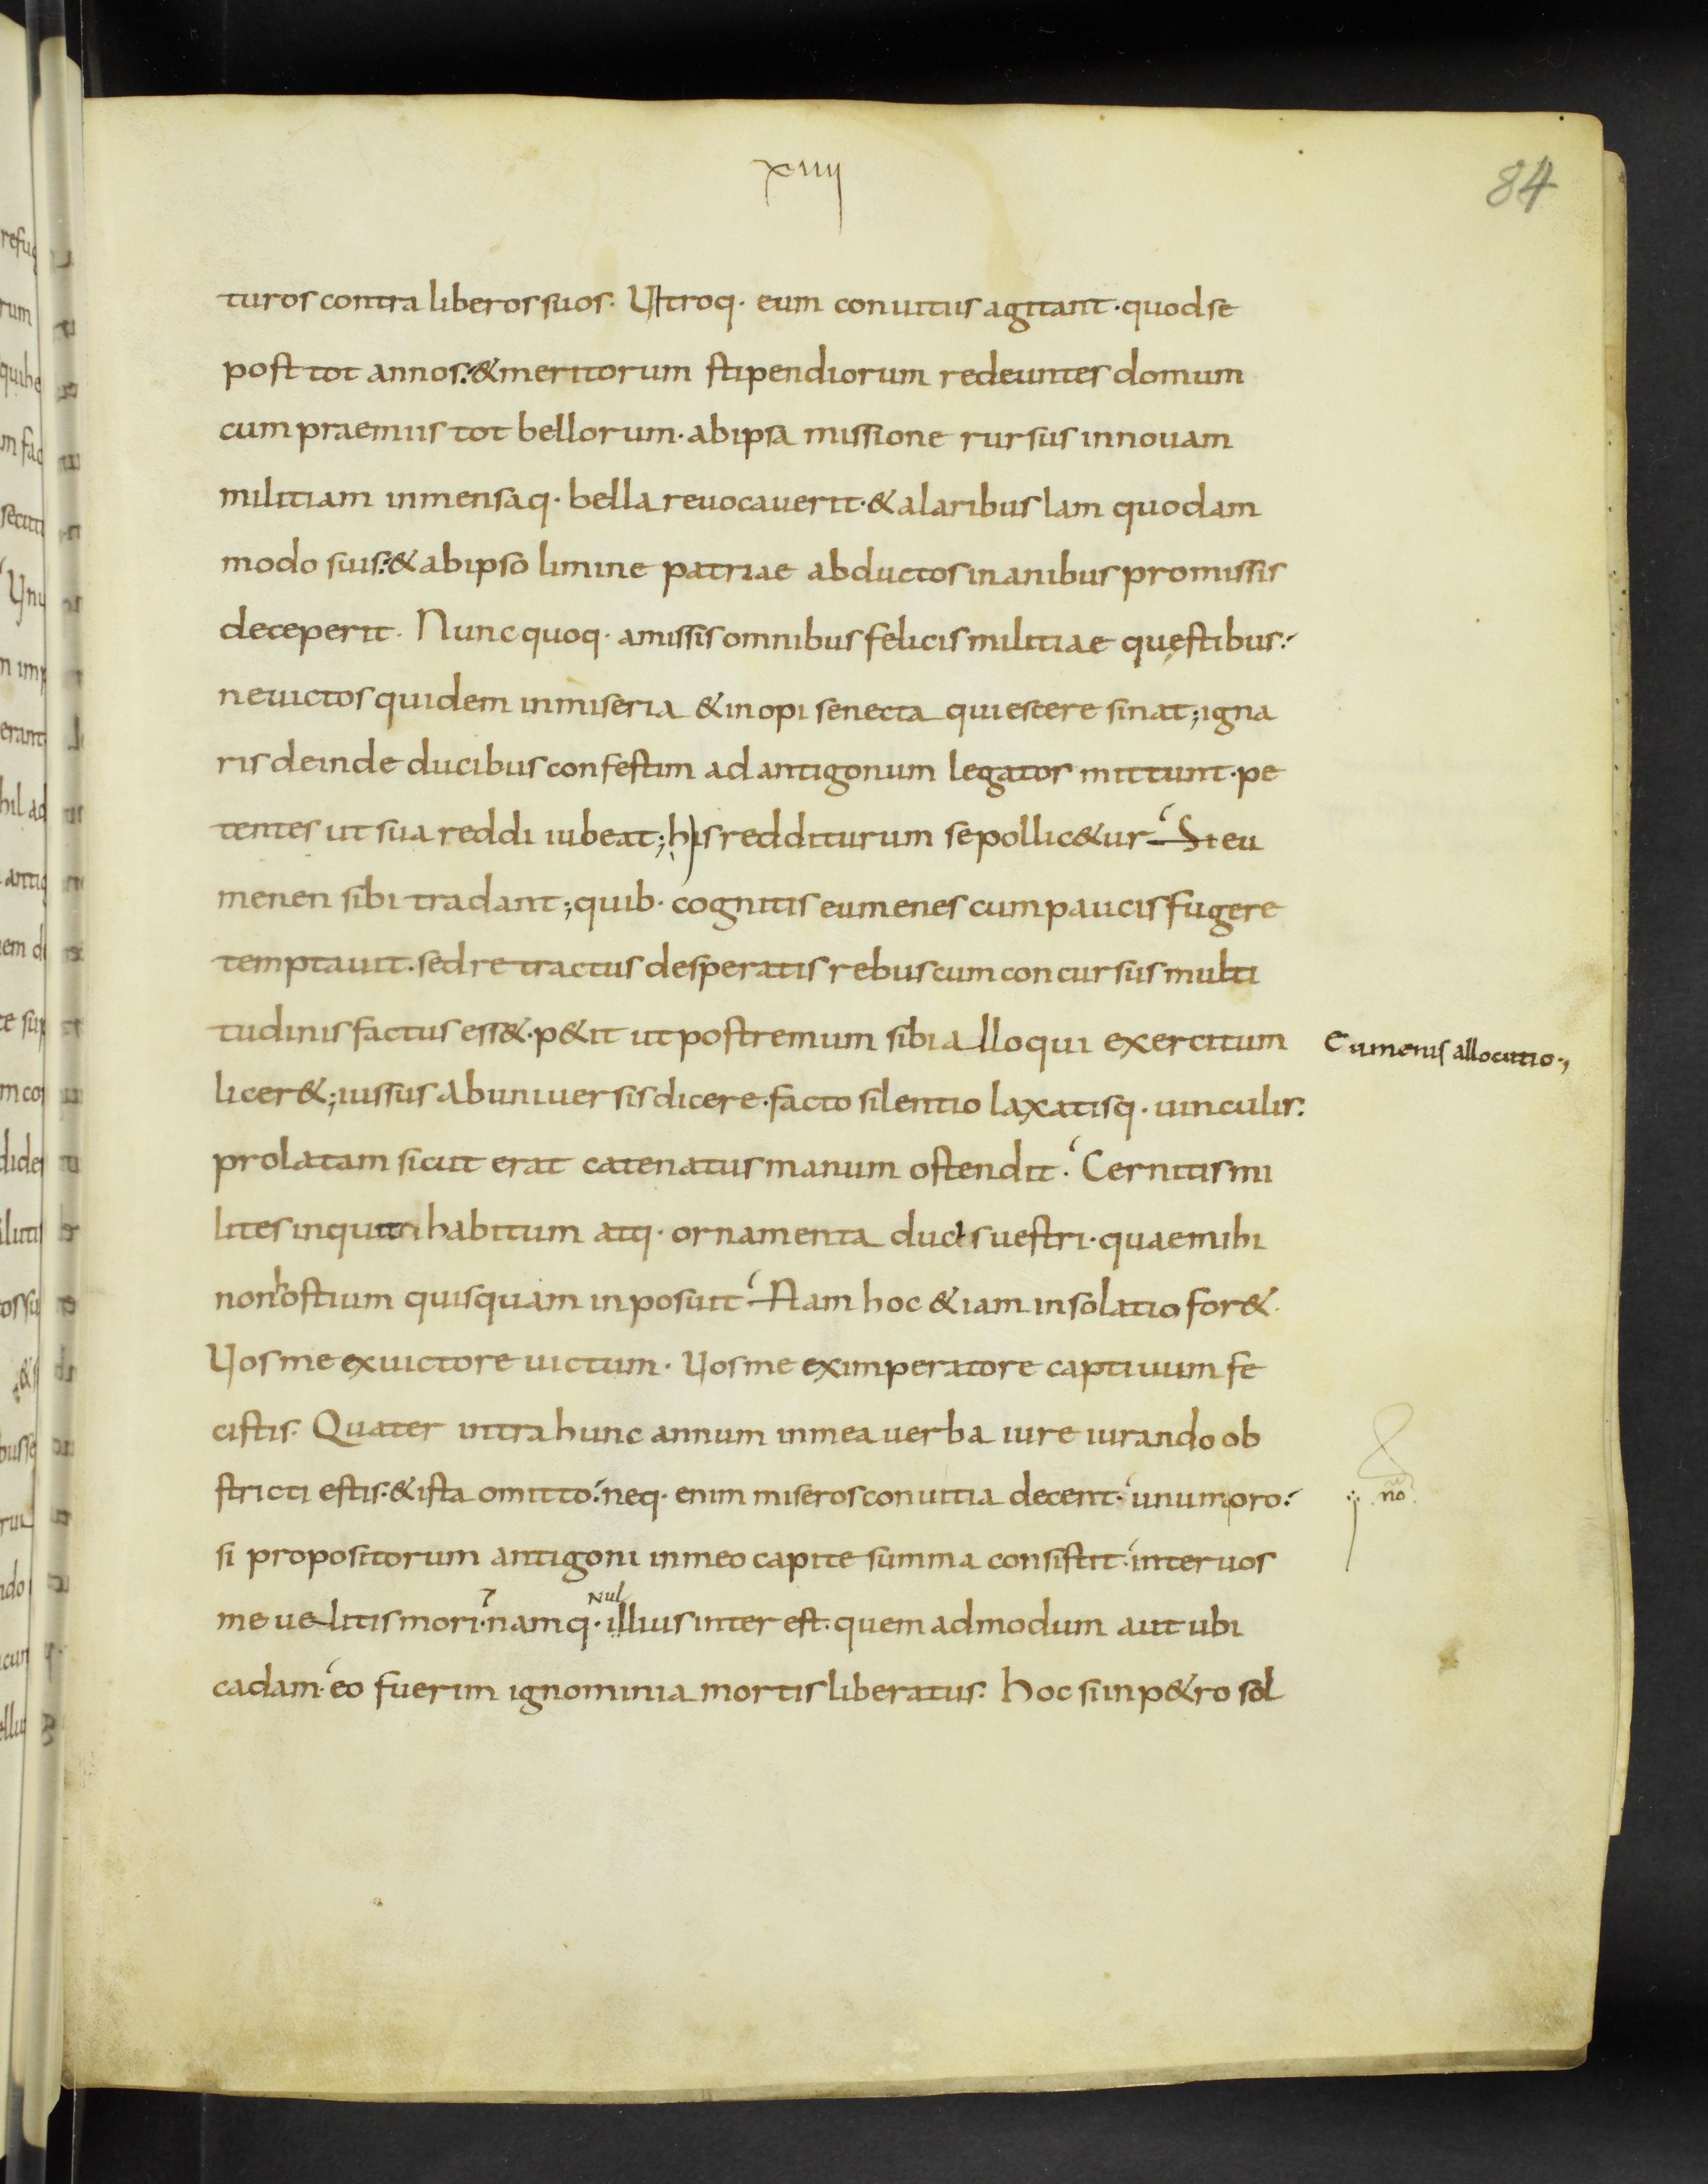 xiiij
84
turos contra liberos suos. Ultroq. eum conuitiis agitant. quod se
post tot annos. & meritorum stipendiorum redeuntes domum
cum praemiis tot bellorum. ab ipsa missione rursus in nouam
militiam inmensaq. bella reuocauerit. & a laribus Iam quodam
modo suis. & ab ipso limine patriae abductos inanibus promissis
deceperit. Nunc quoq. amissis omnibus felicis militiae quęstibus.
ne uictos quidem in miseria & inopi senecta quiescere sinat; igna
ris deinde ducibus confestim ad antigonum legatos mittunt. pe
tentes ut sua reddi iubeat; his redditurum se pollic&ur. Si eu
menen sibi tradant; quib. cognitis eumenes cum paucis fugere
temptauit. sed retractus desperatis rebus cum concursus multi
tudinis factus ess&. p&it ut postremum sibi alloqui exercitum
Eumenis allocutio.,
licer&; iussus ab uniuersis dicere. facto silentio laxatisq. uinculis.
prolatam sicut erat catenatus manum ostendit. Cernitis mi
lites inquit habitum atq. ornamenta ducis uestri. quae mihi
non hostium quisquam inposuit. Nam hoc &iam in solatio for&.
Uos me ex uictore uictum. Uos me ex imperatore captiuum fe
cistis. Quater intra hunc annum in mea uerba iure iurando ob
stricti estis. & ista omitto. neq. enim miseros conuitia decent. unum oro.
no
si propositorum antigoni in meo capite summa consistit. inter uos
me uelitis mori. namq. illius inter est. quem ad modum aut ubi
Nul
cadam. eo fuerim ignominia mortis liberatus. hoc si inp&ro sol